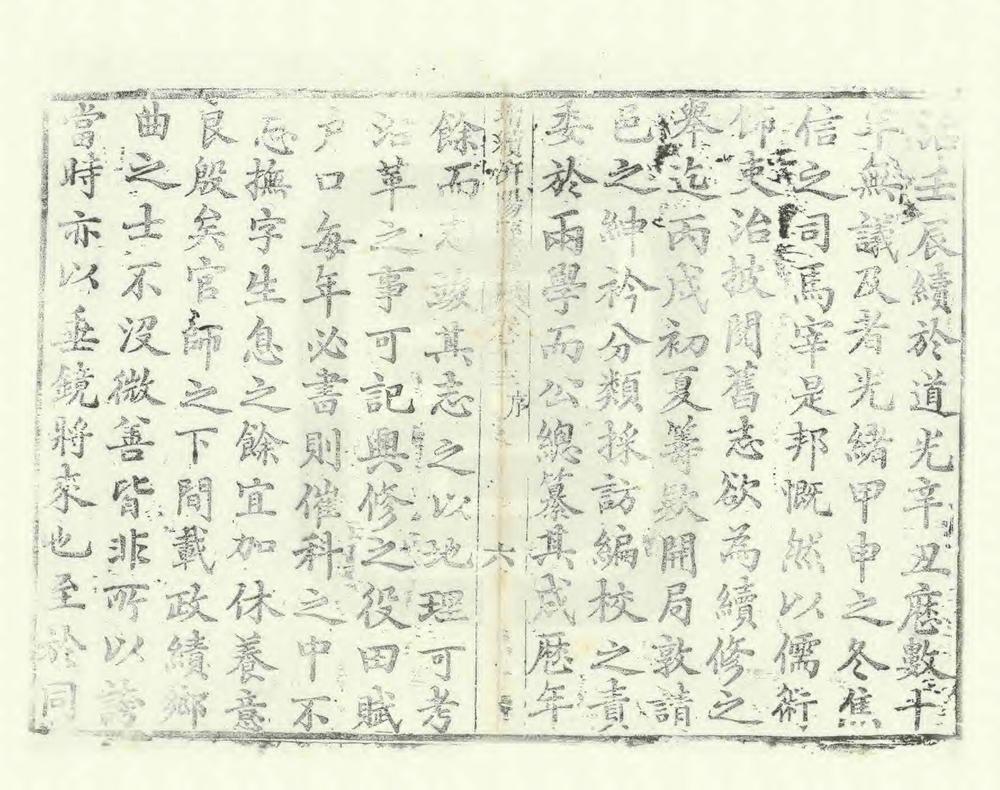 治壬辰續於道光辛丑歷數十
年無議及者光緒甲申之冬焦
信之司馬宰是邦慨然以儒術
飾吏治披閱舊志欲為續修之
舉迄丙戌初夏籌款開局敦請
邑之紳衿分類採訪編校之責
委於兩學而公總纂其成歷年
序 六
餘而志竣其志之以地理可考
沿革之事可記興修之役田賦
戶口每年必書則催科之中不
忘撫字生息之餘宜加休養意
良殷矣官師之下間載政績鄉
曲之士不沒微善皆非所以誇
當時亦以垂鏡將來也至於同